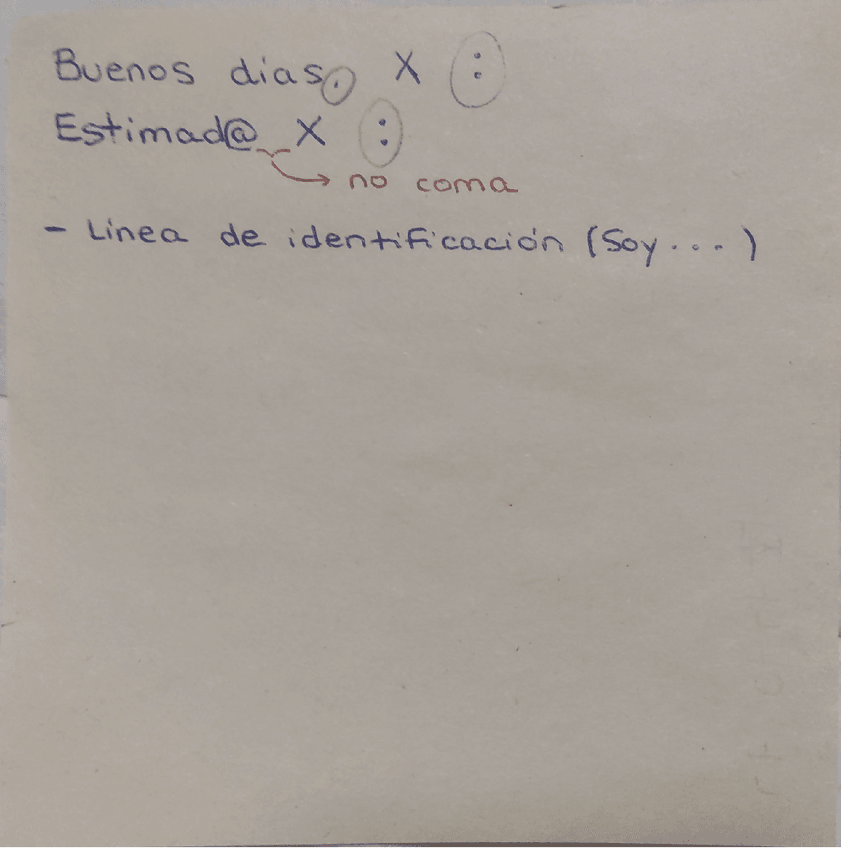 Buenos dias, X :
Estimad@ X :
no coma
- Línea de identificación (Soy ....)